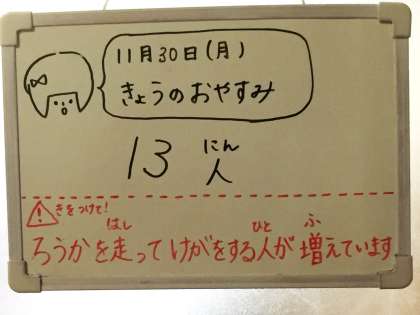 11月30日(月)
きょうのおやすみ
13人
にん
きをつけて!
はし ひと ふ
ろうかを走ってけがをする人が増えています